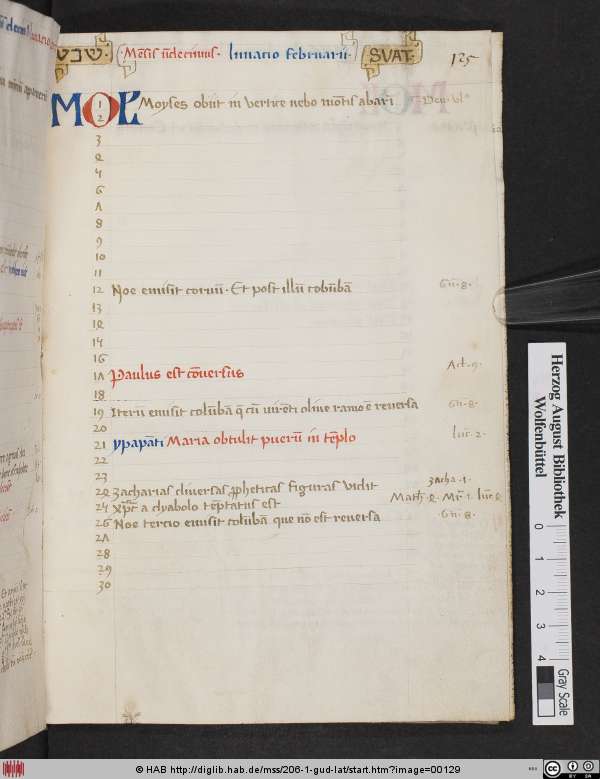 שבט · Me͞sis u͞decimus · lunatio februarii · SVAT · 125
MOL 1 Moyses obiit in vertice nebo mo͞tis abari Deu. ul°
2
3
4
5
6
7
8
9
10
11
12 Noe emisit corvu͞ · Et post illu͞ colu͞ba͞ Ge͞. 8.
13
14
15
16
17 Paulus est co͞versus Act. 9.
18
19 Iteru͞ emisit colu͞ba͞ q͞ cu͞ vire͞ti olive ramo e͞ reversa Ge͞. 8.
20
21 ypapa͞ti Maria obtulit pueru͞ in te͞plo luc͞. 2.
22
23
24 Zacharias diversas ꝓpheticas figuras vidit Zacha. 1.
25 xp͞c a dyabolo te͞ptatus est Math. 4. Mr͞. 1. luc. 4
26 Noe tercio emisit colu͞ba͞ que no͞ est reversa Ge͞. 8.
27
28
29
30
Herzog August Bibliothek
Wolfenbüttel
0 1 2 3 4
Gray Scale
© HAB http://diglib.hab.de/mss/206-1-gud-lat/start.htm?image=00129